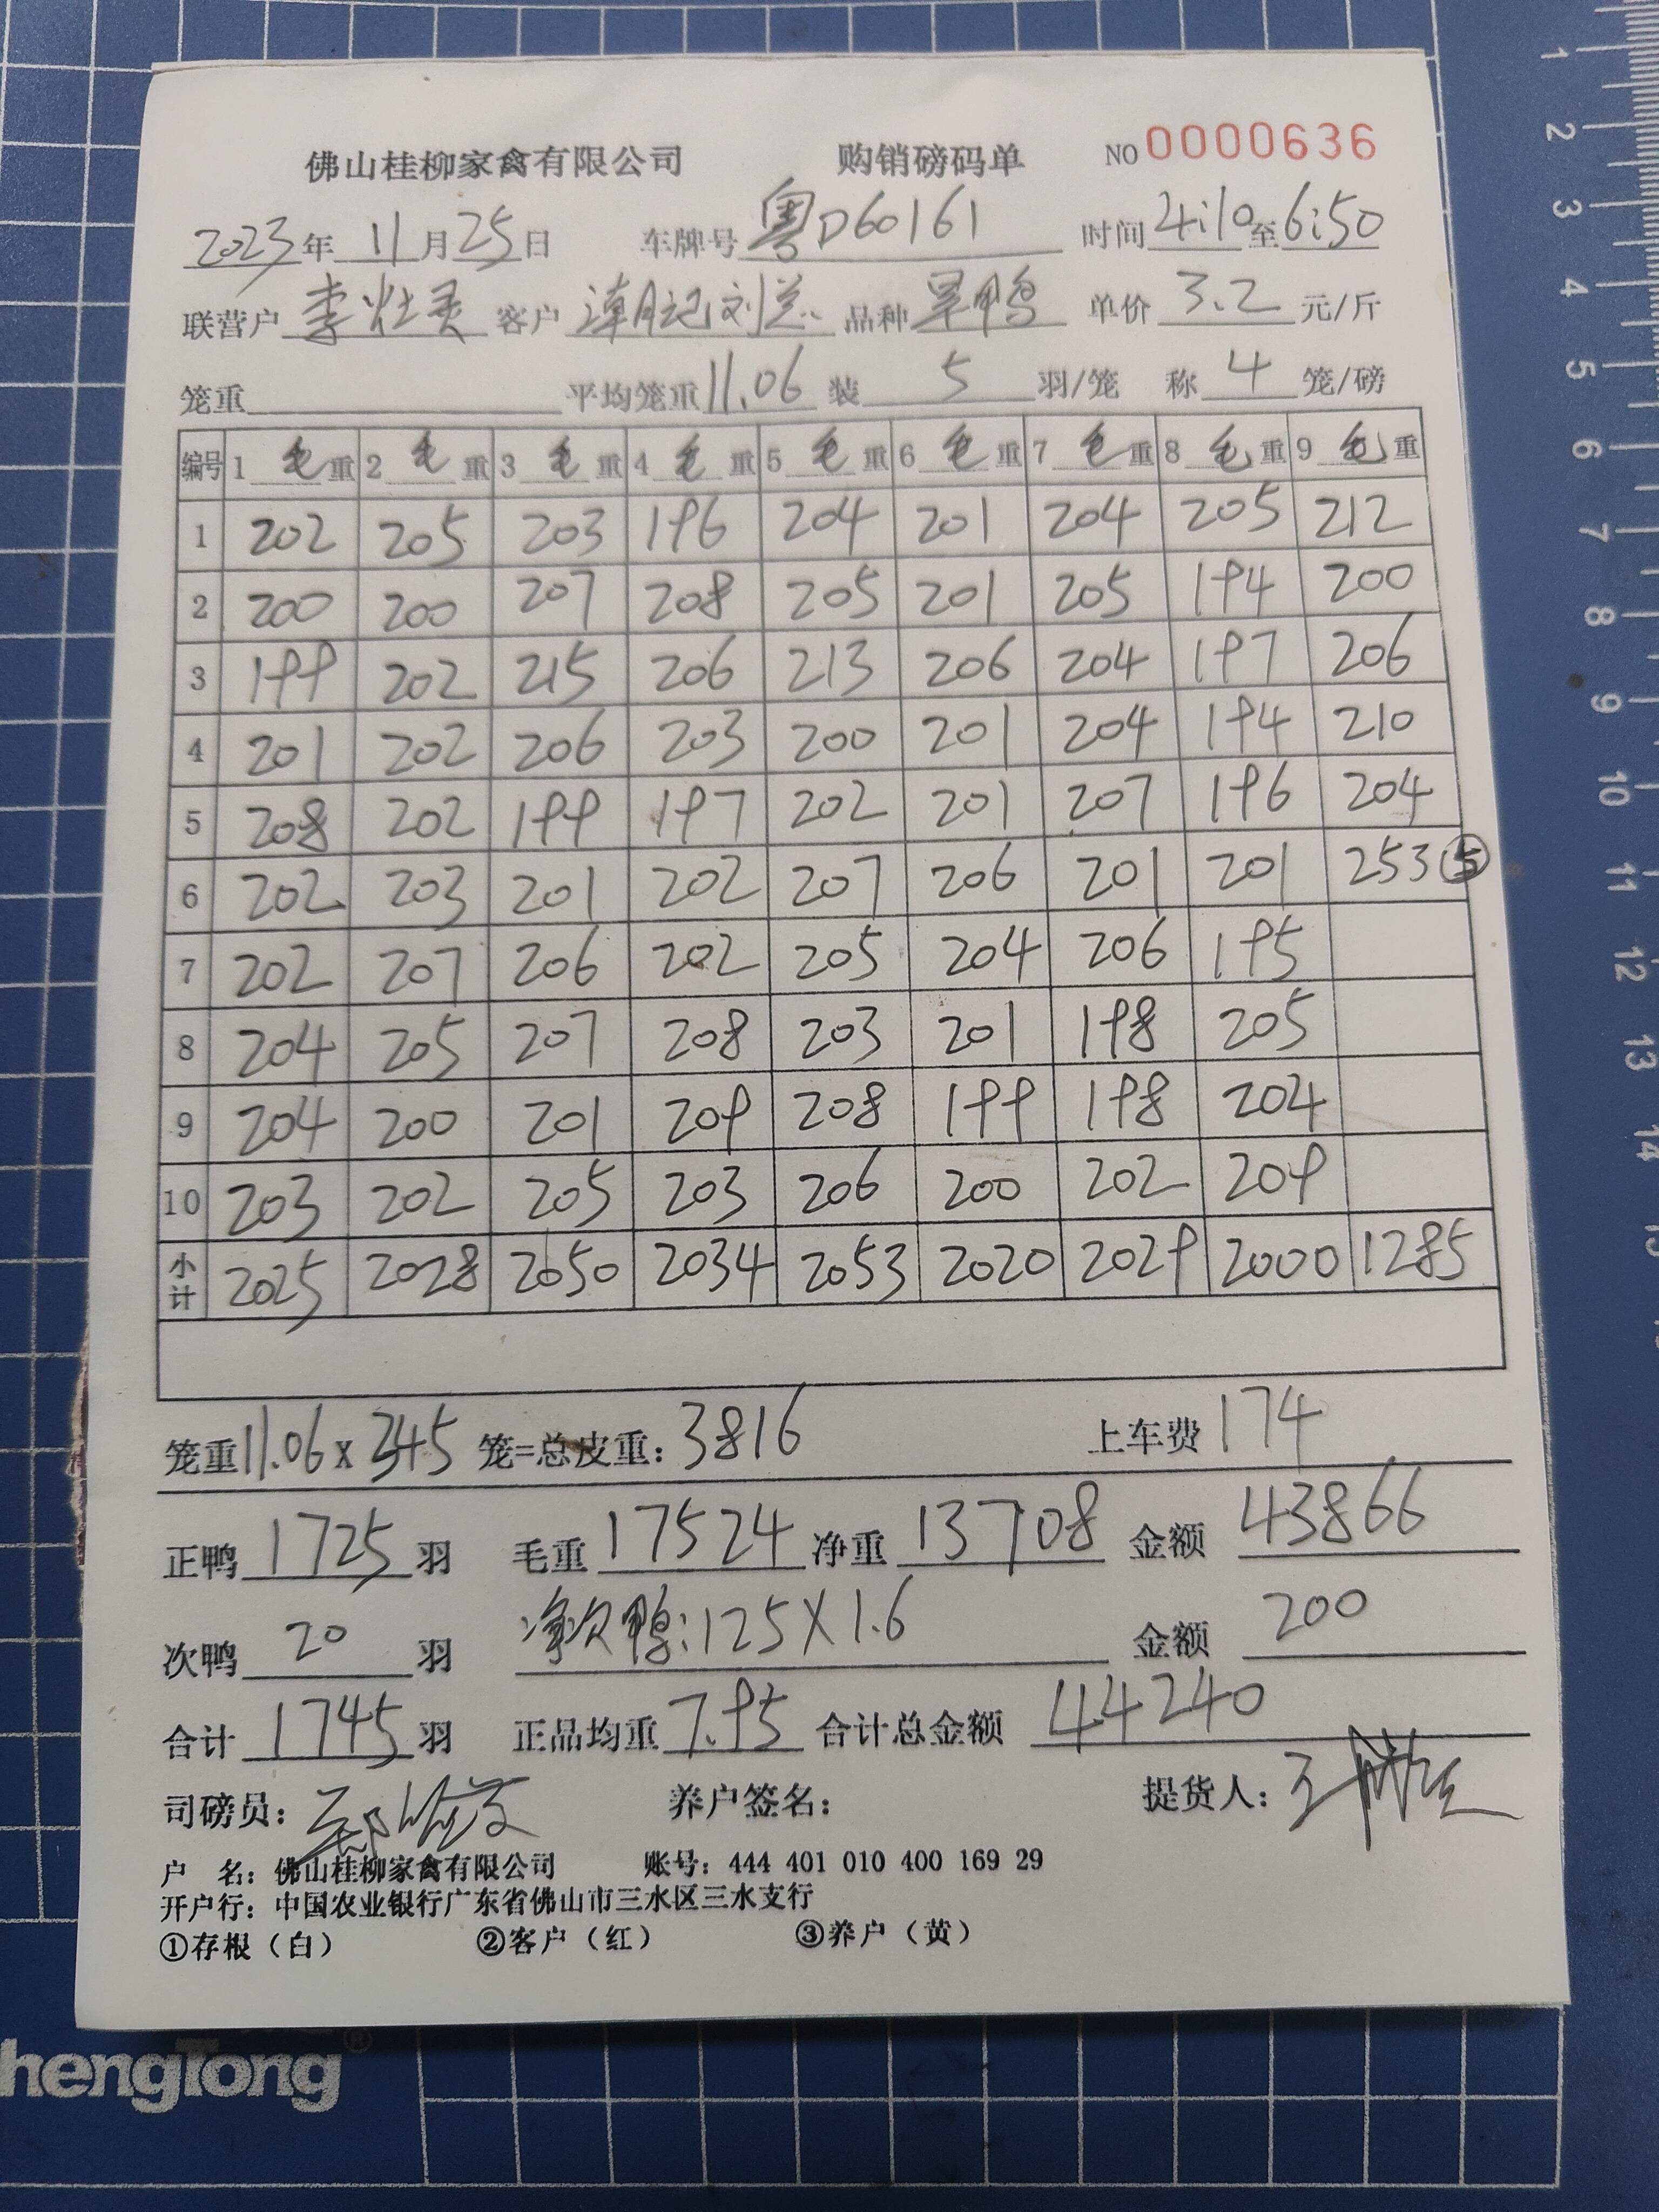 佛山桂柳家禽有限公司 购销磅码单 NO 0000636
2023年 11月25日 车牌号 粤D60161 时间 4:10至6:50
联营户 李灶灵 客户 潭记刘总 品种 旱鸭 单价 3.2 元/斤
笼重 平均笼重 11.06 装 5 羽/笼 称 4 笼/磅
编号 1 毛重 2 毛重 3 毛重 4 毛重 5 毛重 6 毛重 7 毛重 8 毛重 9 毛重
1 202 205 203 196 204 201 204 205 212
2 200 200 207 208 205 201 205 194 200
3 199 202 215 206 213 206 204 197 206
4 201 202 206 203 200 201 204 194 210
5 208 202 199 197 202 201 207 196 204
6 202 203 201 202 207 206 201 201 253⑤
7 202 207 206 202 205 204 206 195
8 204 205 207 208 203 201 198 205
9 204 200 201 209 208 199 198 204
10 203 202 205 203 206 200 202 209
小计 2025 2028 2050 2034 2053 2020 2029 2000 1285
笼重11.06x345 笼=总皮重：3816 上车费174
正鸭 1725 羽 毛重 17524 净重 13708 金额 43866
次鸭 20 羽 净次鸭:125X1.6 金额 200
合计 1745 羽 正品均重 7.95 合计总金额 44240
司磅员： 养户签名： 提货人：
户 名：佛山桂柳家禽有限公司 账号：444 401 010 400 169 29
开户行：中国农业银行广东省佛山市三水区三水支行
①存根（白） ②客户（红） ③养户（黄）
hengTong®
1 2 3 4 5 6 7 8 9 10 11 12 13 14